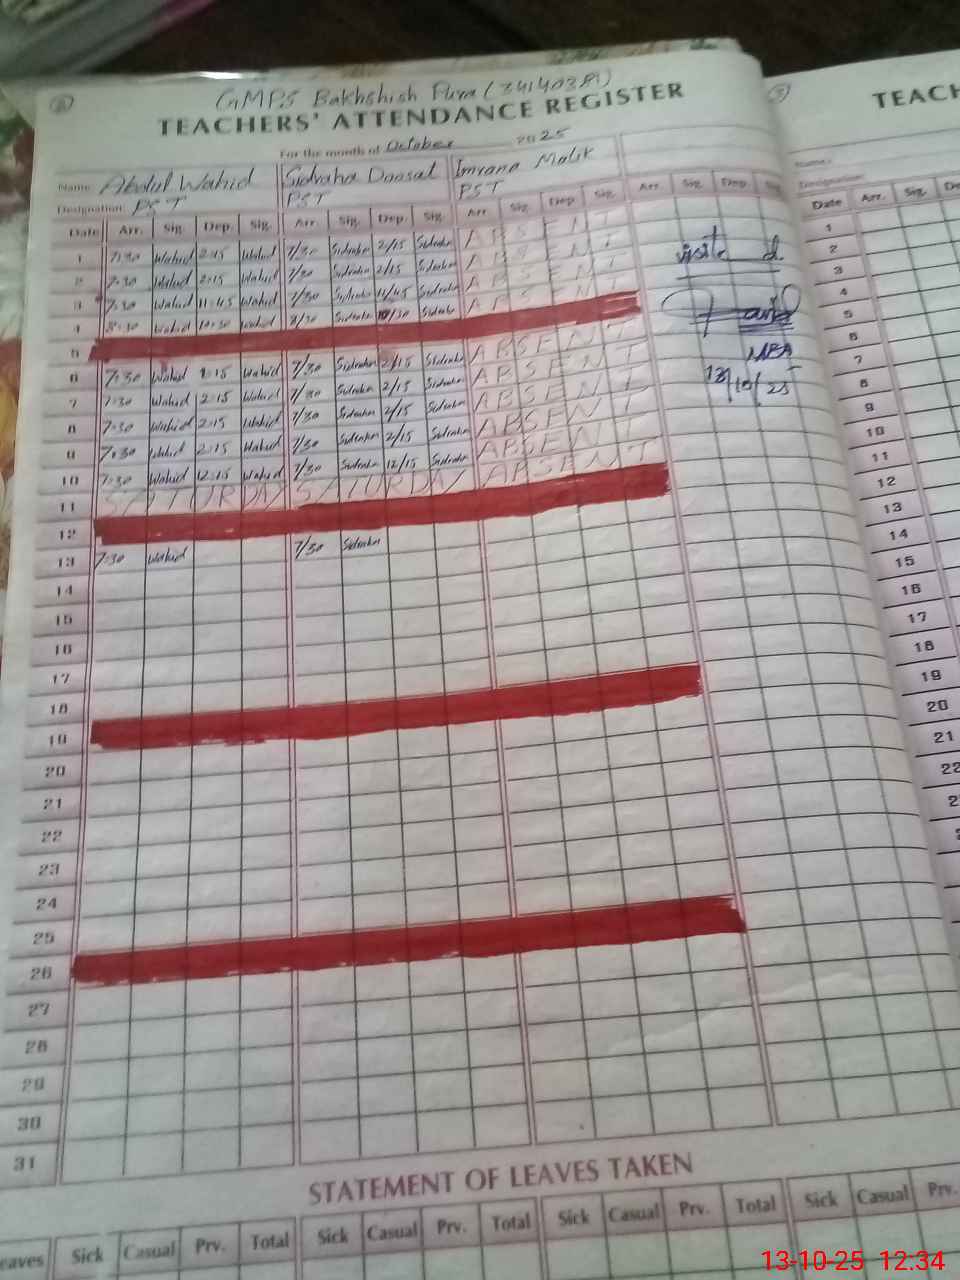 GMPS Bakhshish Pura (34140381)
TEACHERS' ATTENDANCE REGISTER
For the month of October 2025
Name Abdul Wahid Sidraha Imrana Malik
Designation PST PST PST
Date Arr. Sig. Dep. Sig. Arr. Sig. Dep. Sig. Arr. Sig. Dep. Sig. Arr. Sig. Dep.
1 7:30 Wahid 2:15 Wahid 7/30 Sidraha 2/15 Sidraha ABSENT
2 7:30 Wahid 2:15 Wahid 7/30 Sidraha 2/15 Sidraha ABSENT
3 7:30 Wahid 11:45 Wahid 7/30 Sidraha 11/45 Sidraha ABSENT
4 8:30 Wahid 10:30 Wahid 8/30 Sidraha 10/30 Sidraha ABSENT
5
6 7:30 Wahid 2:15 Wahid 7/30 Sidraha 2/15 Sidraha ABSENT
7 7:30 Wahid 2:15 Wahid 7/30 Sidraha 2/15 Sidraha ABSENT
8 7:30 Wahid 2:15 Wahid 7/30 Sidraha 2/15 Sidraha ABSENT
9 7:30 Wahid 2:15 Wahid 7/30 Sidraha 2/15 Sidraha ABSENT
10 7:30 Wahid 12:15 Wahid 7/30 Sidraha 12/15 Sidraha ABSENT
11 SATURDAY SATURDAY
12
13 7:30 Wahid 7/30 Sidraha
14
15
16
17
18
19
20
21
22
23
24
25
26
27
28
29
30
31
visited
MEA
13/10/25
STATEMENT OF LEAVES TAKEN
eaves Sick Casual Prv. Total Sick Casual Prv. Total Sick Casual Prv. Total Sick Casual Prv.
TEACH
Name:
Designation:
Date Arr. Sig. De
1
2
3
4
5
6
7
8
9
10
11
12
13
14
15
16
17
18
19
20
21
22
13-10-25 12:34